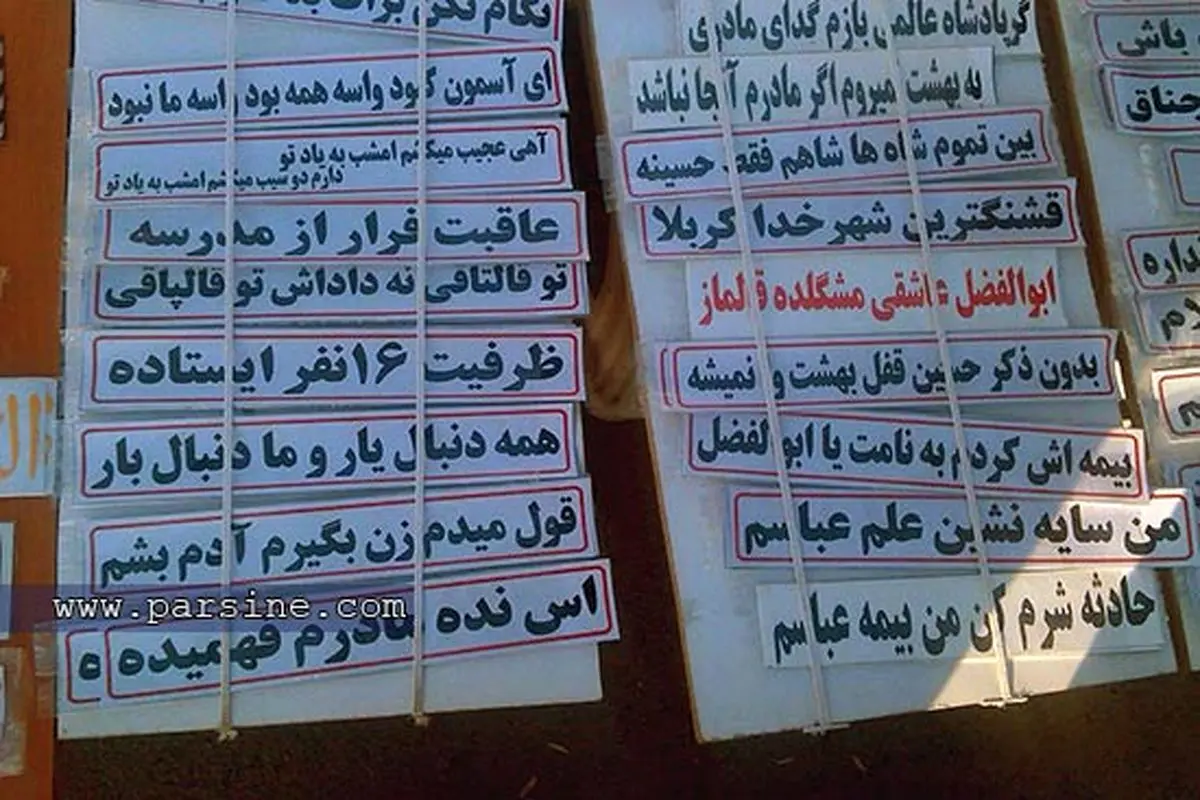 نگام نکن برات بد
ای آسمون کبود واسه همه بود واسه ما نبود
آهی عجیب میکشم امشب به یاد تو
دارم دو سیب میکشم امشب به یاد تو
عاقبت فرار از مدرسه
تو قالتاقی نه داداش تو قالپاقی
ظرفیت ۱۶نفر ایستاده
همه دنبال یار و ما دنبال بار
قول میدم زن بگیرم آدم بشم
اس نده مادرم فهمیده
ه
www.parsine.com
گرپادشاه عالمی بازم گدای مادری
به بهشت نمیروم اگر مادرم آنجا نباشد
بین تموم شاه ها شاهم فقط حسینه
قشنگترین شهرخدا کربلا
ابوالفضل عاشقی مشگلده قالماز
بدون ذکر حسین قفل بهشت وا نمیشه
بیمه اش کردم به نامت یا ابوالفضل
من سایه نشین علم عباسم
حادثه شرم کن من بیمه عباسم
باش
جناق
نداره